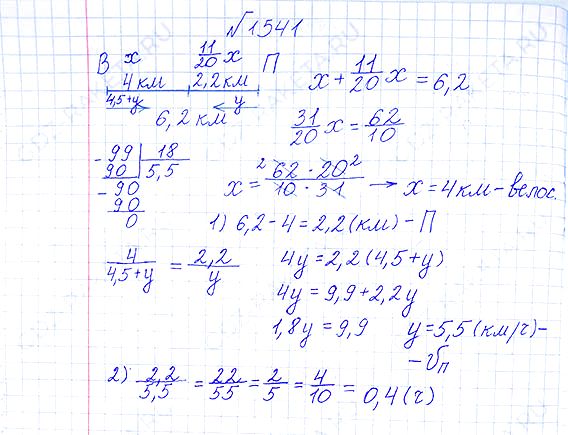 №1541
В x 11/20 x П
4 км 2,2 км
4,5+y y
6,2 км
x + 11/20 x = 6,2
31/20 x = 62/10
99 | 18
90 | 5,5
- 90
90
0
x = 62 · 20 / 10 · 31 → x = 4 км - велос.
1) 6,2 - 4 = 2,2 (км) - П
4 / 4,5+y = 2,2 / y
4y = 2,2 (4,5+y)
4y = 9,9 + 2,2y
1,8y = 9,9 y = 5,5 (км/ч) -
- Vп
2) 2,2/5,5 = 22/55 = 2/5 = 4/10 = 0,4 (ч)